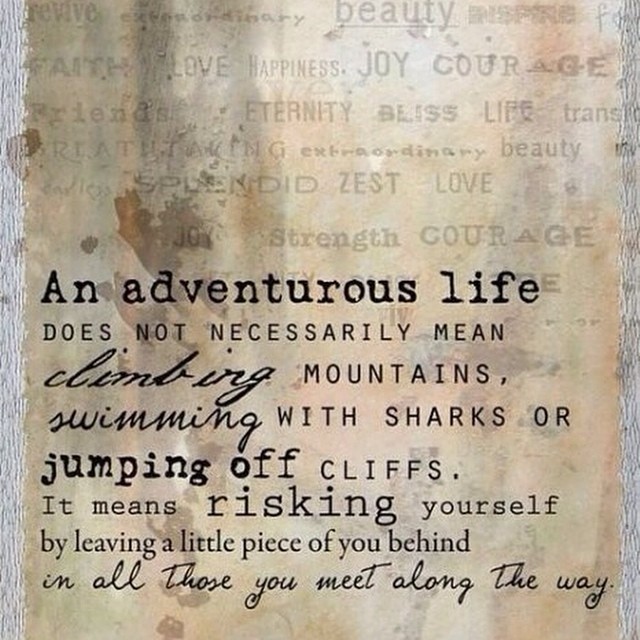 revive extraordinary beauty INSPIRE
FAITH LOVE HAPPINESS. JOY COURAGE
Friends ETERNITY BLISS LIFE
BREATHTAKING extraordinary beauty
SPLENDID ZEST LOVE
JOY Strength COURAGE
An adventurous life
DOES NOT NECESSARILY MEAN
climbing MOUNTAINS,
swimming WITH SHARKS OR
jumping off CLIFFS.
It means risking yourself
by leaving a little piece of you behind
in all those you meet along the way.